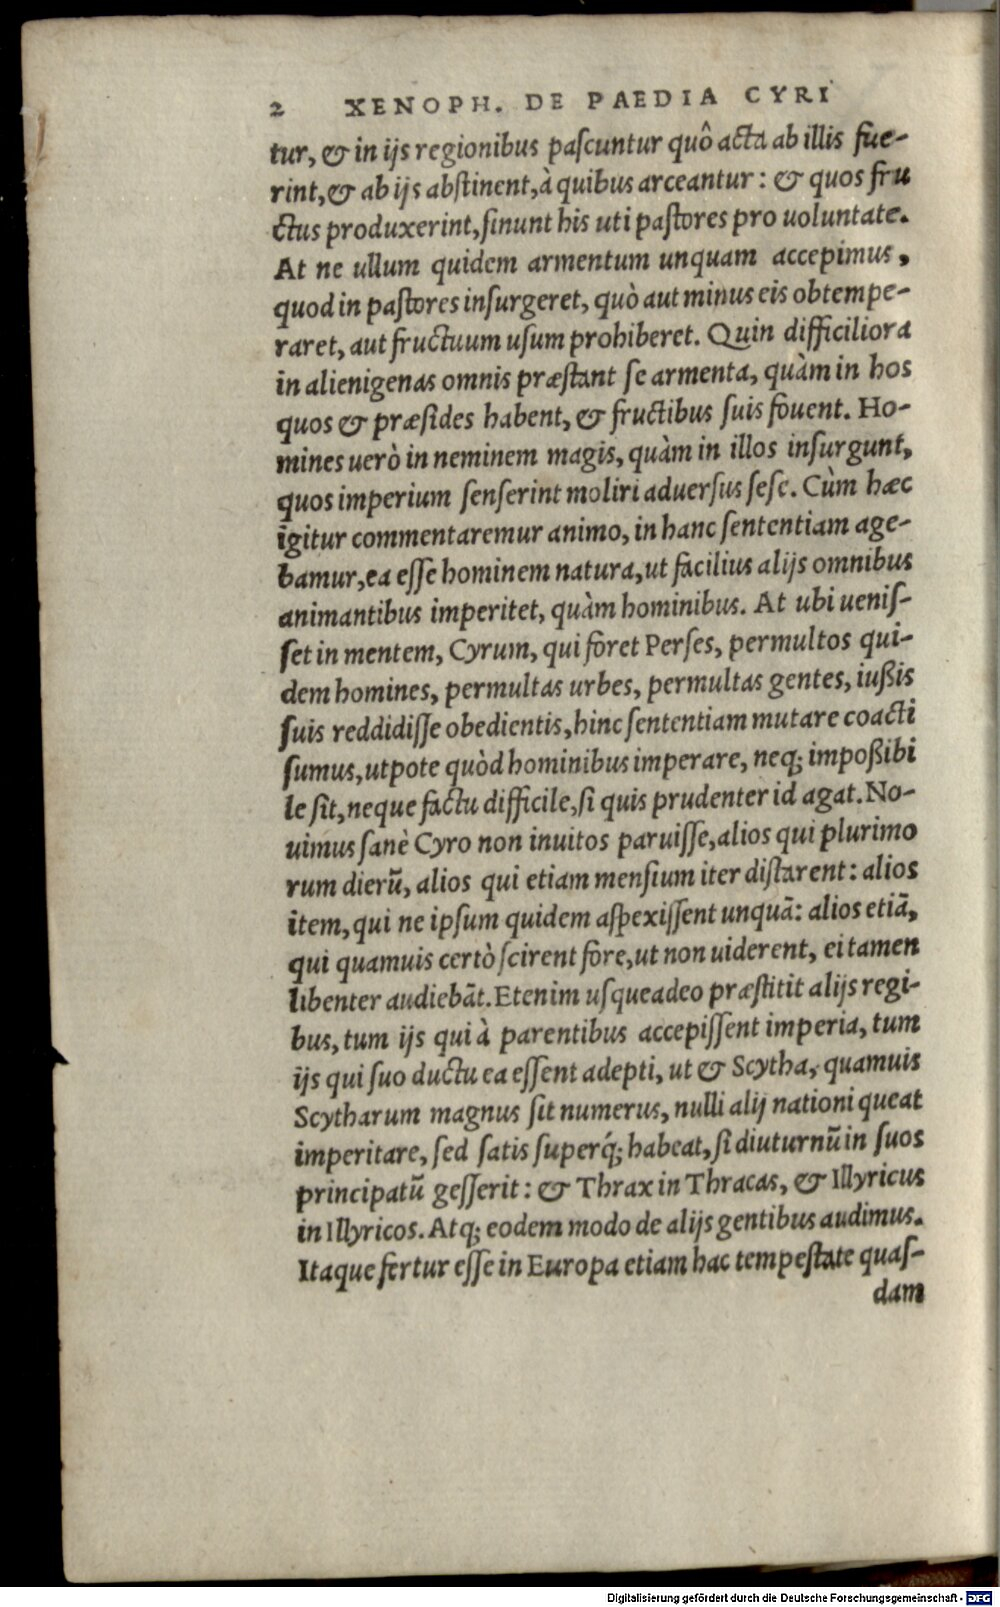 2 XENOPH. DE PAEDIA CYRI
tur, & in ijs regionibus paſcuntur quô acta ab illis fue-
rint, & ab ijs abſtinent, à quibus arceantur: & quos fru
ctus produxerint, ſinunt his uti paſtores pro uoluntate.
At ne ullum quidem armentum unquam accepimus,
quod in paſtores inſurgeret, quò aut minus eis obtempe-
raret, aut fructuum uſum prohiberet. Quin difficiliora
in alienigenas omnis præſtant ſe armenta, quàm in hos
quos & præſides habent, & fructibus ſuis fouent. Ho-
mines uerò in neminem magis, quàm in illos inſurgunt,
quos imperium ſenſerint moliri aduerſus ſeſe. Cùm hæc
igitur commentaremur animo, in hanc ſententiam age-
bamur, ea eſſe hominem natura, ut facilius alijs omnibus
animantibus imperitet, quàm hominibus. At ubi ueniſ-
ſet in mentem, Cyrum, qui foret Perſes, permultos qui-
dem homines, permultas urbes, permultas gentes, iußis
ſuis reddidiſſe obedientis, hinc ſententiam mutare coacti
ſumus, utpote quòd hominibus imperare, neq; impoßibi
le ſit, neque factu difficile, ſi quis prudenter id agat. No-
uimus ſanè Cyro non inuitos paruiſſe, alios qui plurimo
rum dierũ, alios qui etiam menſium iter diſtarent: alios
item, qui ne ipſum quidem aſpexiſſent unquã: alios etiã,
qui quamuis certò ſcirent fore, ut non uiderent, ei tamen
libenter audiebãt. Etenim uſqueadeo præſtitit alijs regi-
bus, tum ijs qui à parentibus accepiſſent imperia, tum
ijs qui ſuo ductu ea eſſent adepti, ut & Scytha, quamuis
Scytharum magnus ſit numerus, nulli alij nationi queat
imperitare, ſed ſatis ſuperq́; habeat, ſi diuturnũ in ſuos
principatũ geſſerit: & Thrax in Thracas, & Illyricus
in Illyricos. Atq; eodem modo de alijs gentibus audimus.
Itaque fertur eſſe in Europa etiam hac tempeſtate quaſ-
dam
Digitalisierung gefördert durch die Deutsche Forschungsgemeinschaft - DFG